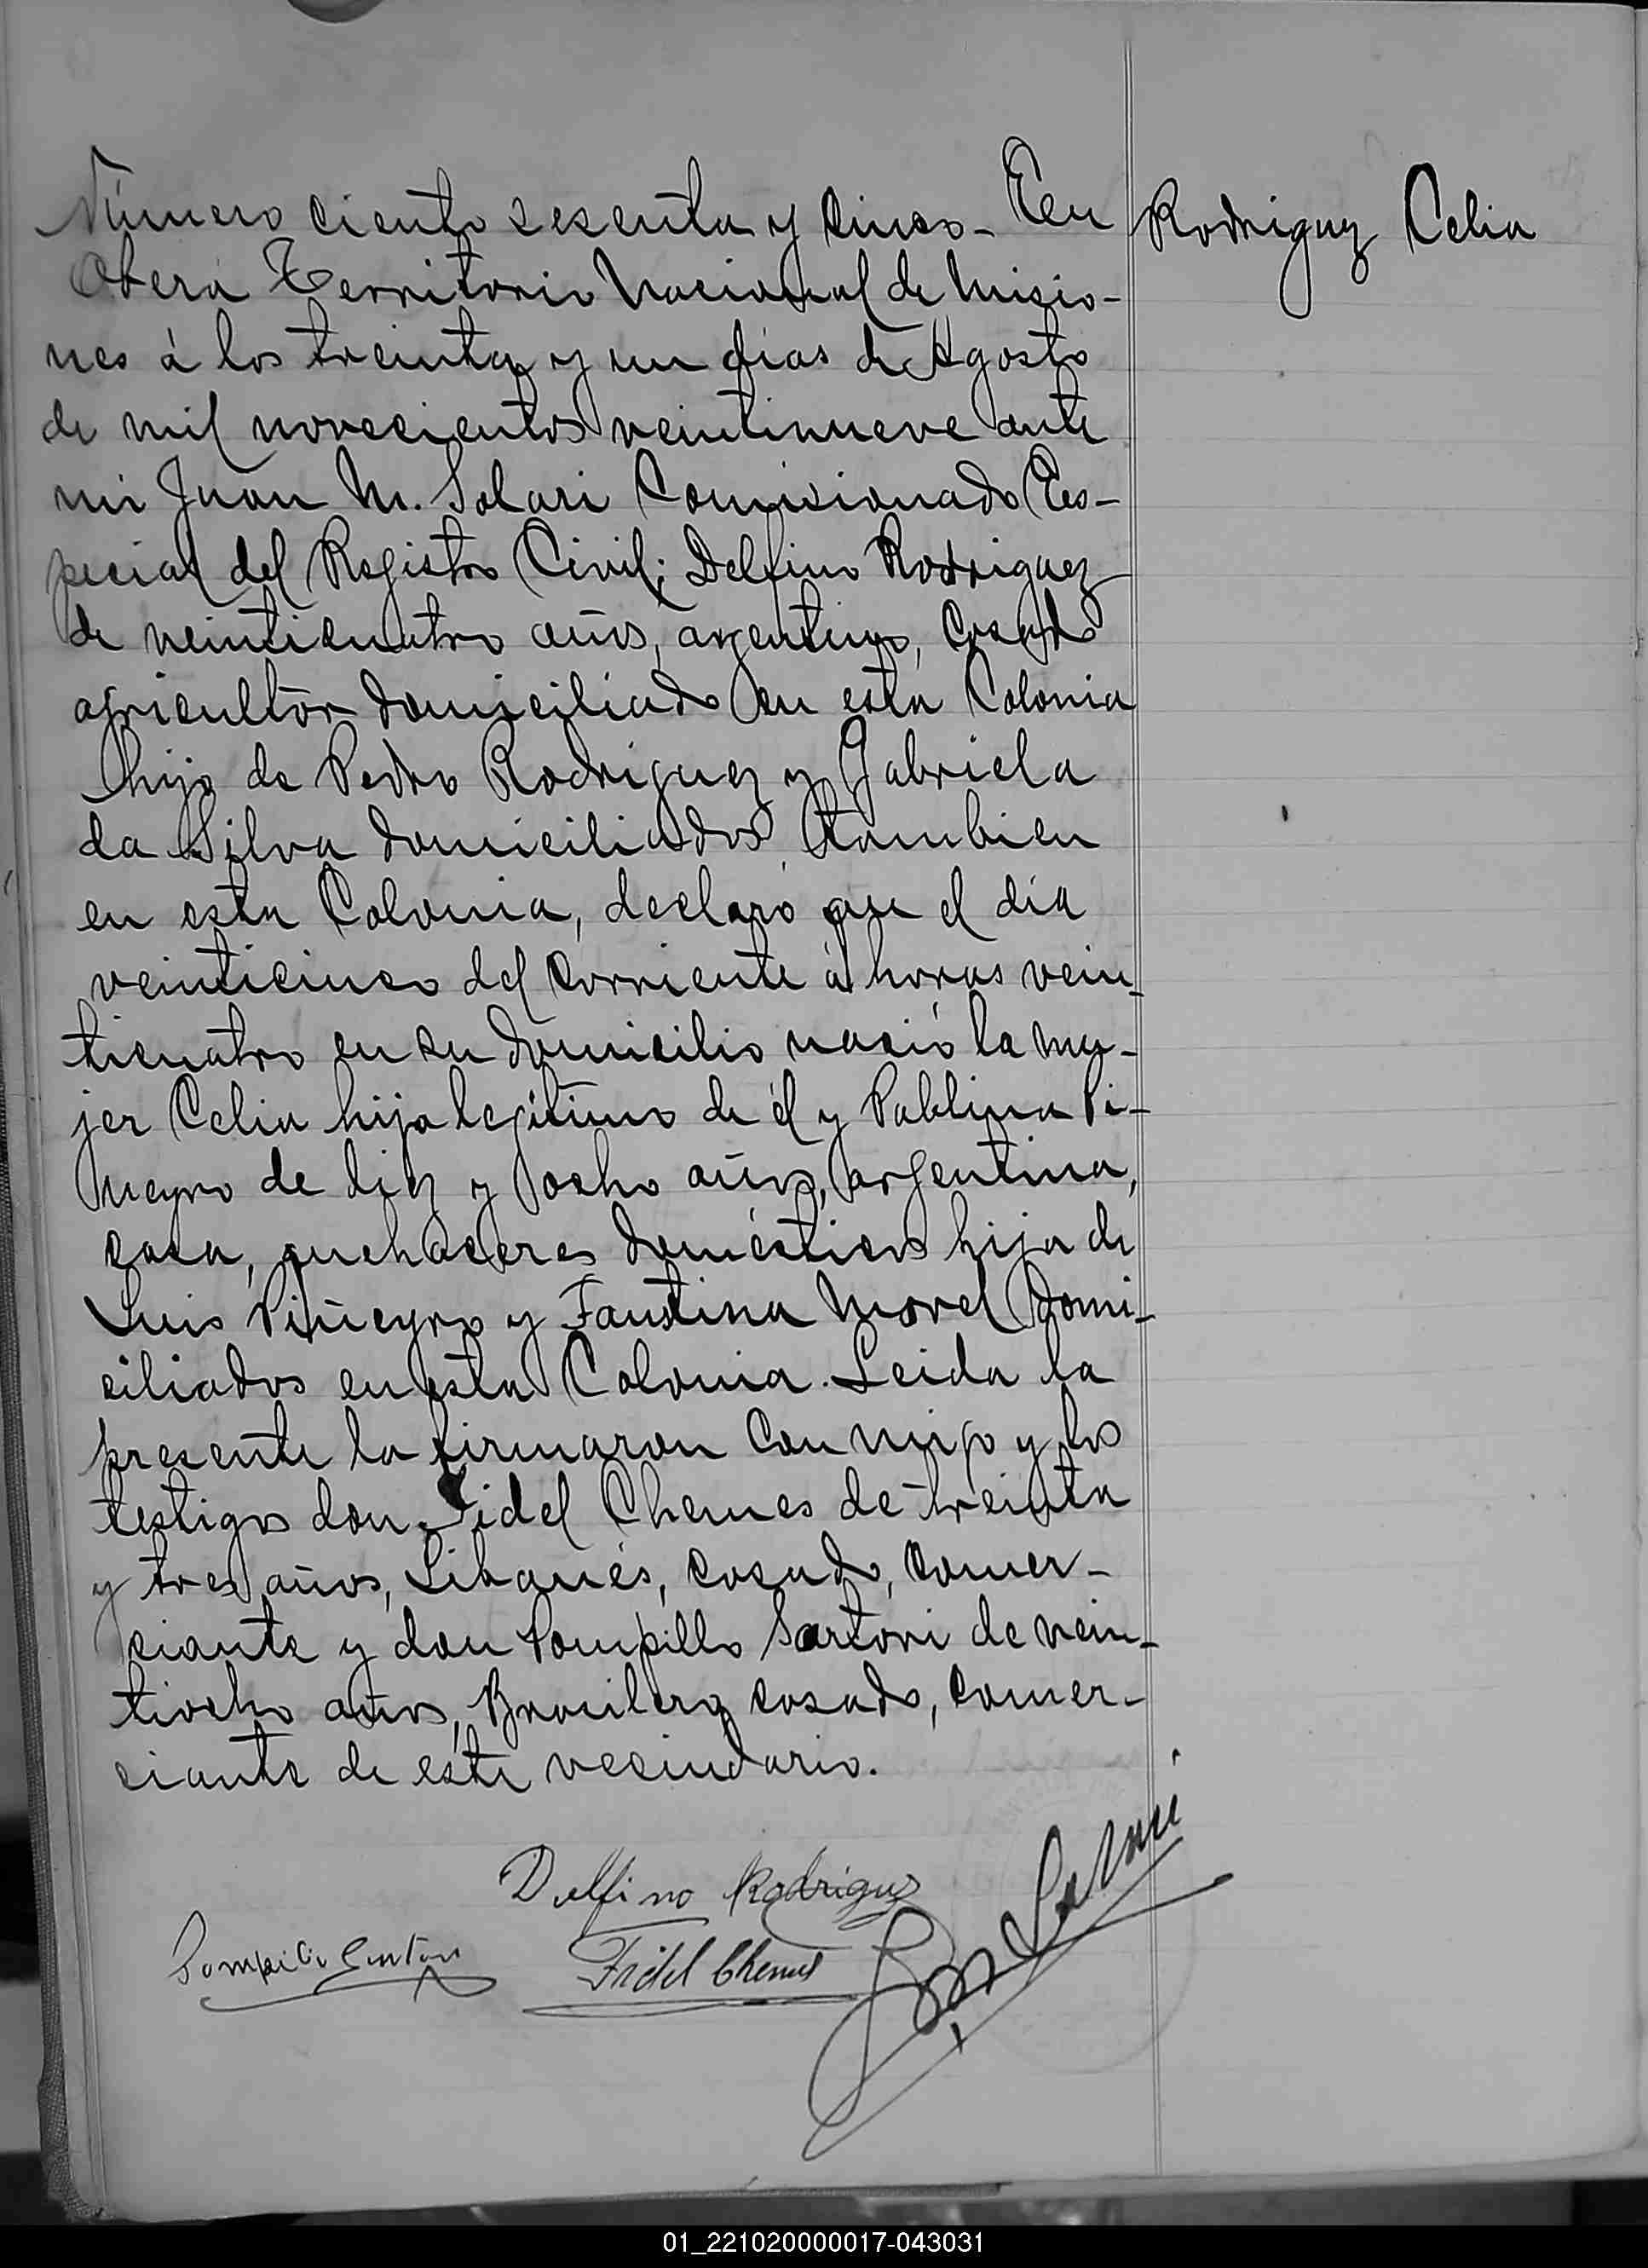 Número ciento sesenta y cinco - En
Rodriguez Celia
Oberá Territorio Nacional de Misio-
nes á los treinta y un días de Agosto
de mil novecientos veintinueve ante
mi Juan M. Solari Comisionado Es-
pecial del Registro Civil; Delfino Rodriguez
de veinticuatro años, argentino, casado
agricultor domiciliado en esta Colonia
hijo de Pedro Rodriguez y Gabriela
da Silva domiciliados tambien
en esta Colonia, declaró que el día
veinticinco del corriente á horas vein-
ticuatro en su domicilio nació la mu-
jer Celia hija legítima de él y Pablina Pi-
neyro de diez y ocho años, argentina,
casa, quehaceres domésticos hija de
Luis Piñeyro y Faustina Morel domi-
ciliados en esta Colonia. Leida la
presente la firmaron con migo y los
testigos don Fidel Chemes de treinta
y tres años, Libanés, casado, comer-
ciante y don Pompillo Sartori de vein-
tiocho años, Brasilero casado, comer-
ciante de este vecindario.
Delfino Rodriguez
Pompilio Sartori Fidel Chemes
01_221020000017-043031